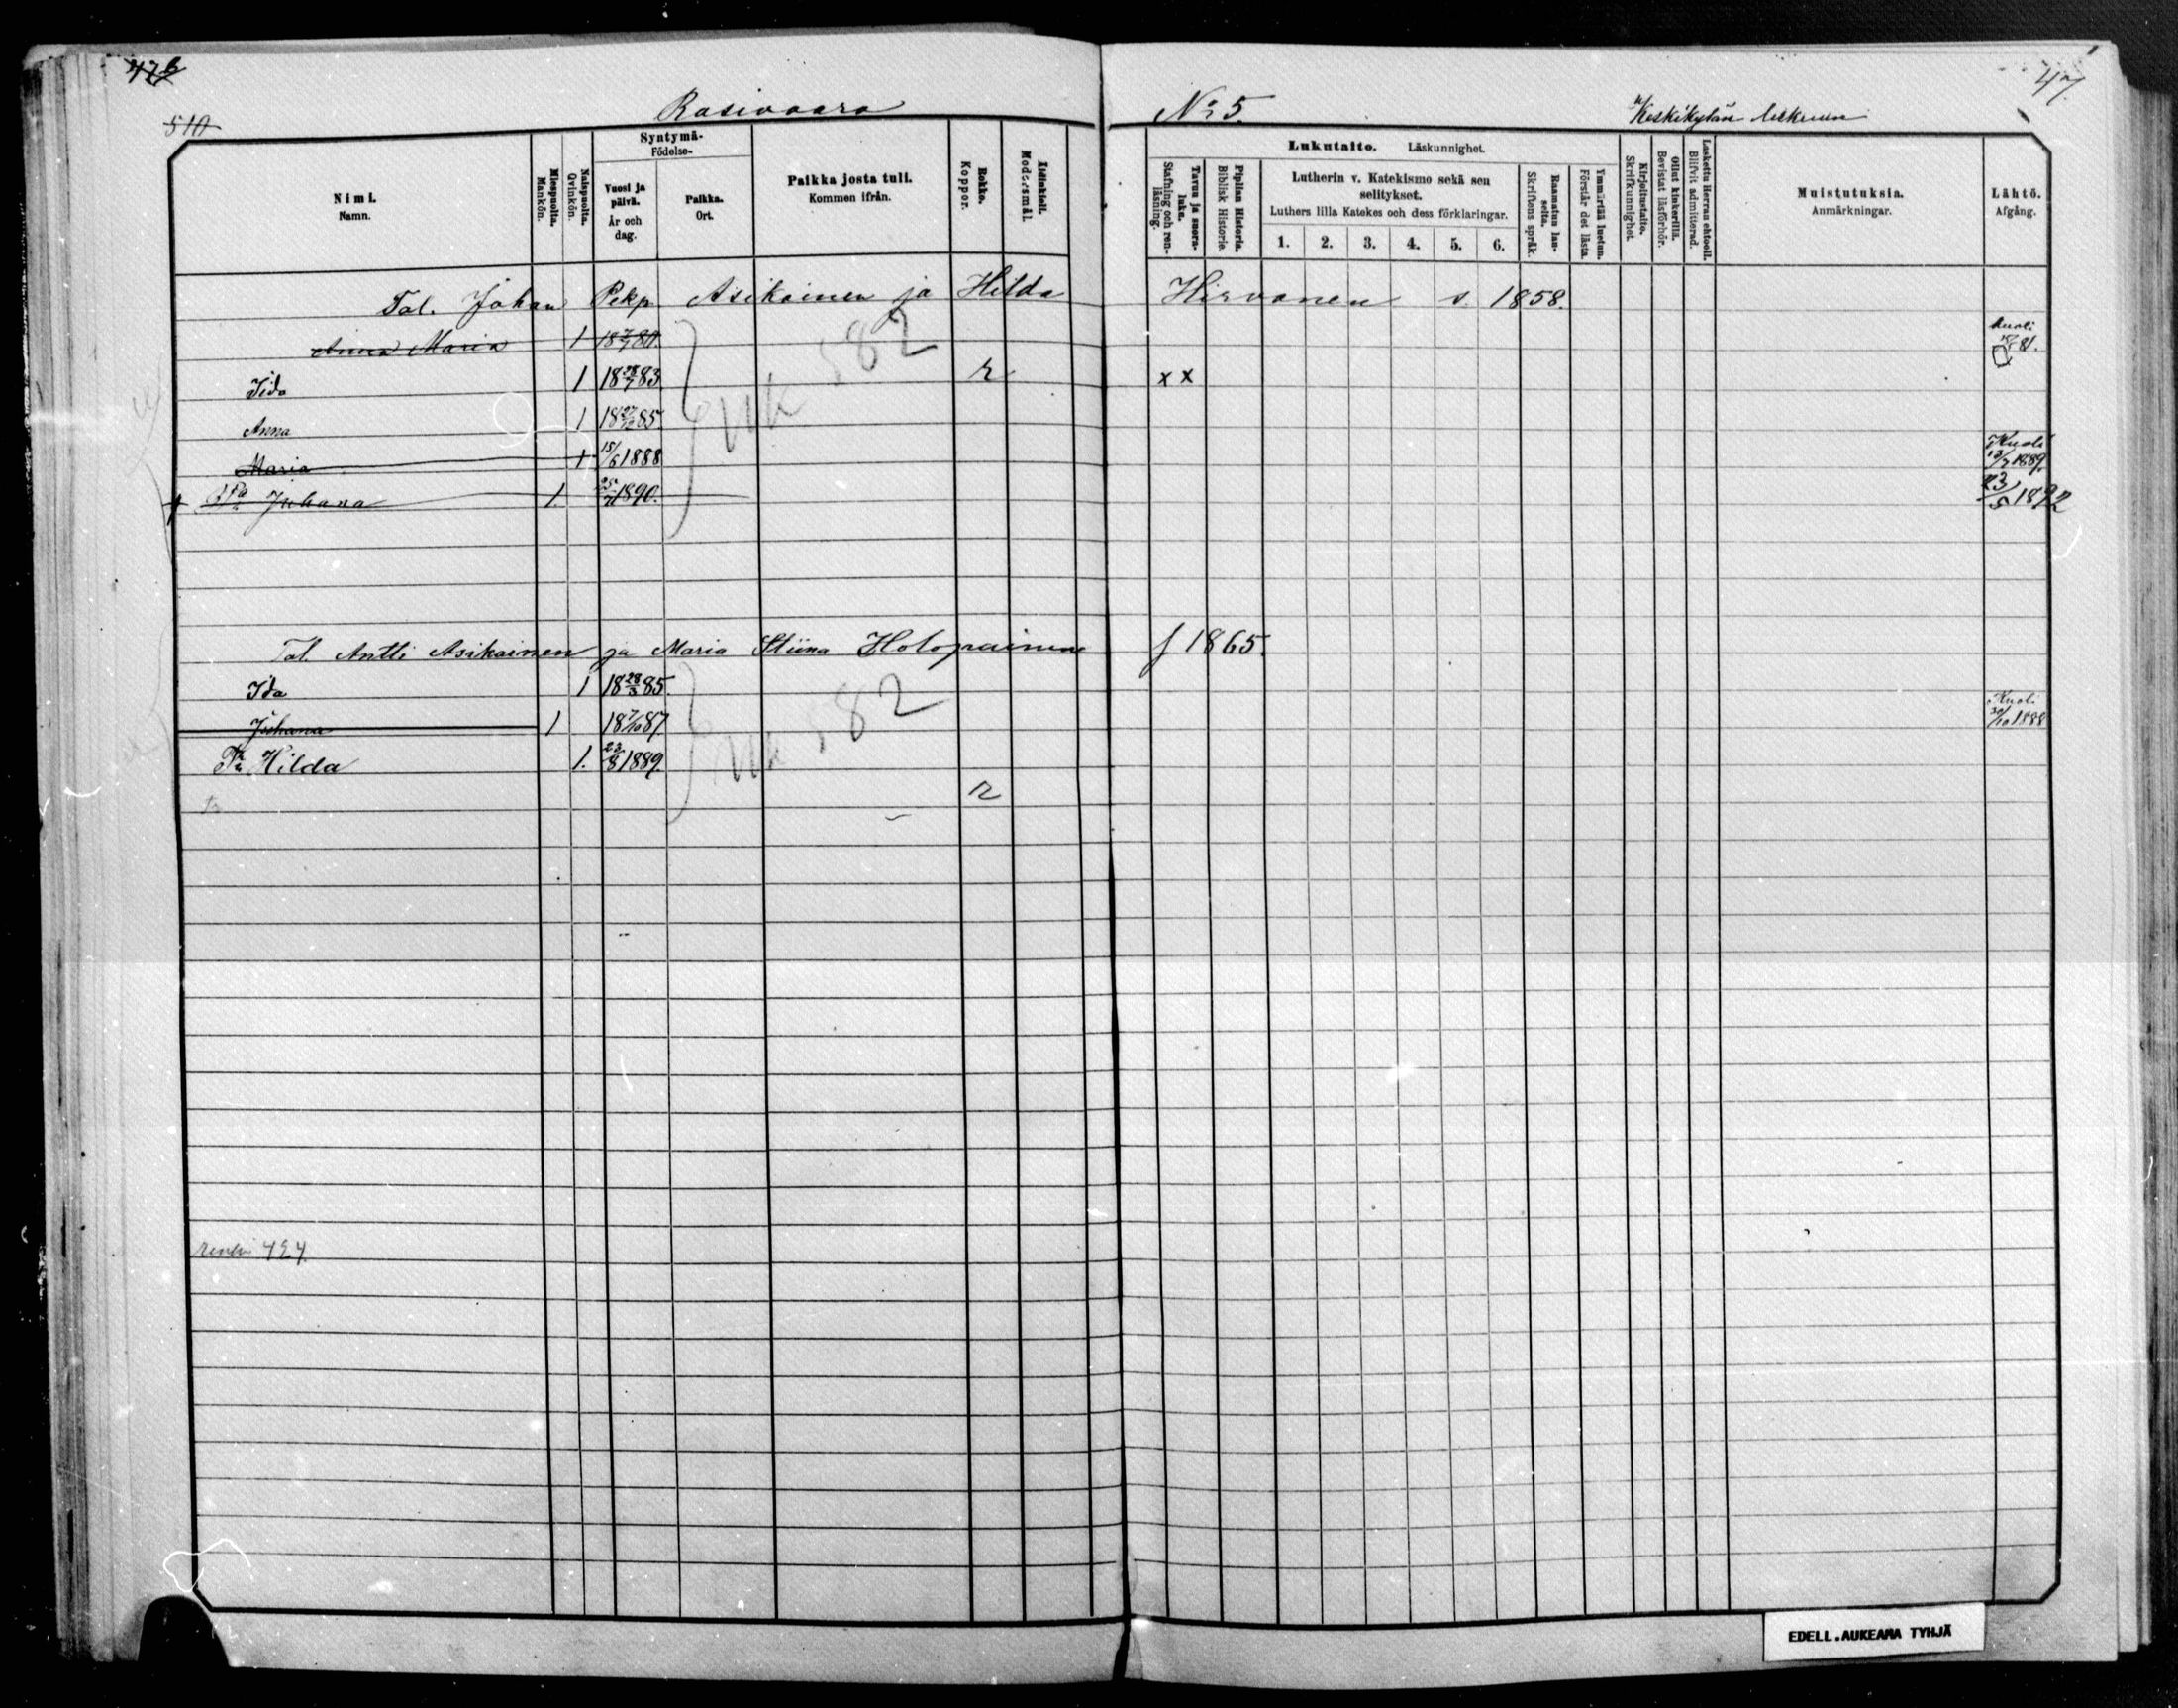 476
510
Rasivaara
No 5.
47.
Keskikylän
Nimi.
Namn.
Miespuolta.
Mankön.
Naispuolta.
Qvinkön.
Syntymä-
Födelse-
Vuosi ja päivä.
År och dag.
Paikka.
Ort.
Paikka josta tuli.
Kommen ifrån.
Rokko.
Koppor.
Äidinkieli.
Modersmål.
Lukutaito. Läskunnighet.
Tavuu ja suora-luku.
Stafning och ren-läsning.
Piplian Historia.
Biblisk Historie.
Lutherin v. Katekismo sekä sen selitykset.
Luthers lilla Katekes och dess förklaringar.
1. 2. 3. 4. 5. 6.
Raamatun lau-seita.
Skriftens språk.
Ymmärtää luetun.
Förstår det lästa.
Kirjoitustaito.
Skrifkunnighet.
Ollut kinkerillä.
Bevistat läsförhör.
Laskettu Herran ehtooll.
Blifvit admitterad.
Muistutuksia.
Anmärkningar.
Lähtö.
Afgång.
Tal. Johan Pekp. Asikainen ja Hilda Hirvonen s. 1858.
Anna Maria 1 18 7/7 80. Kuoli 81.
Iida 1 18 28/7 83 r x x
Anna 1 18 27/12 85.
Maria 1 15/6 1888 Kuoli 13/7 1889.
Juhana 1. 25/11 1890. 23/5 1892
582
Tal. Antti Asikainen ja Maria Stiina Holopainen f 1865.
Ida 1 18 28/3 85.
Juhana 1 18 7/10 87. Kuoli 30/10 1888
Hilda 1. 23/8 1889.
582
r
424.
EDELL.AUKEAMA TYHJÄ